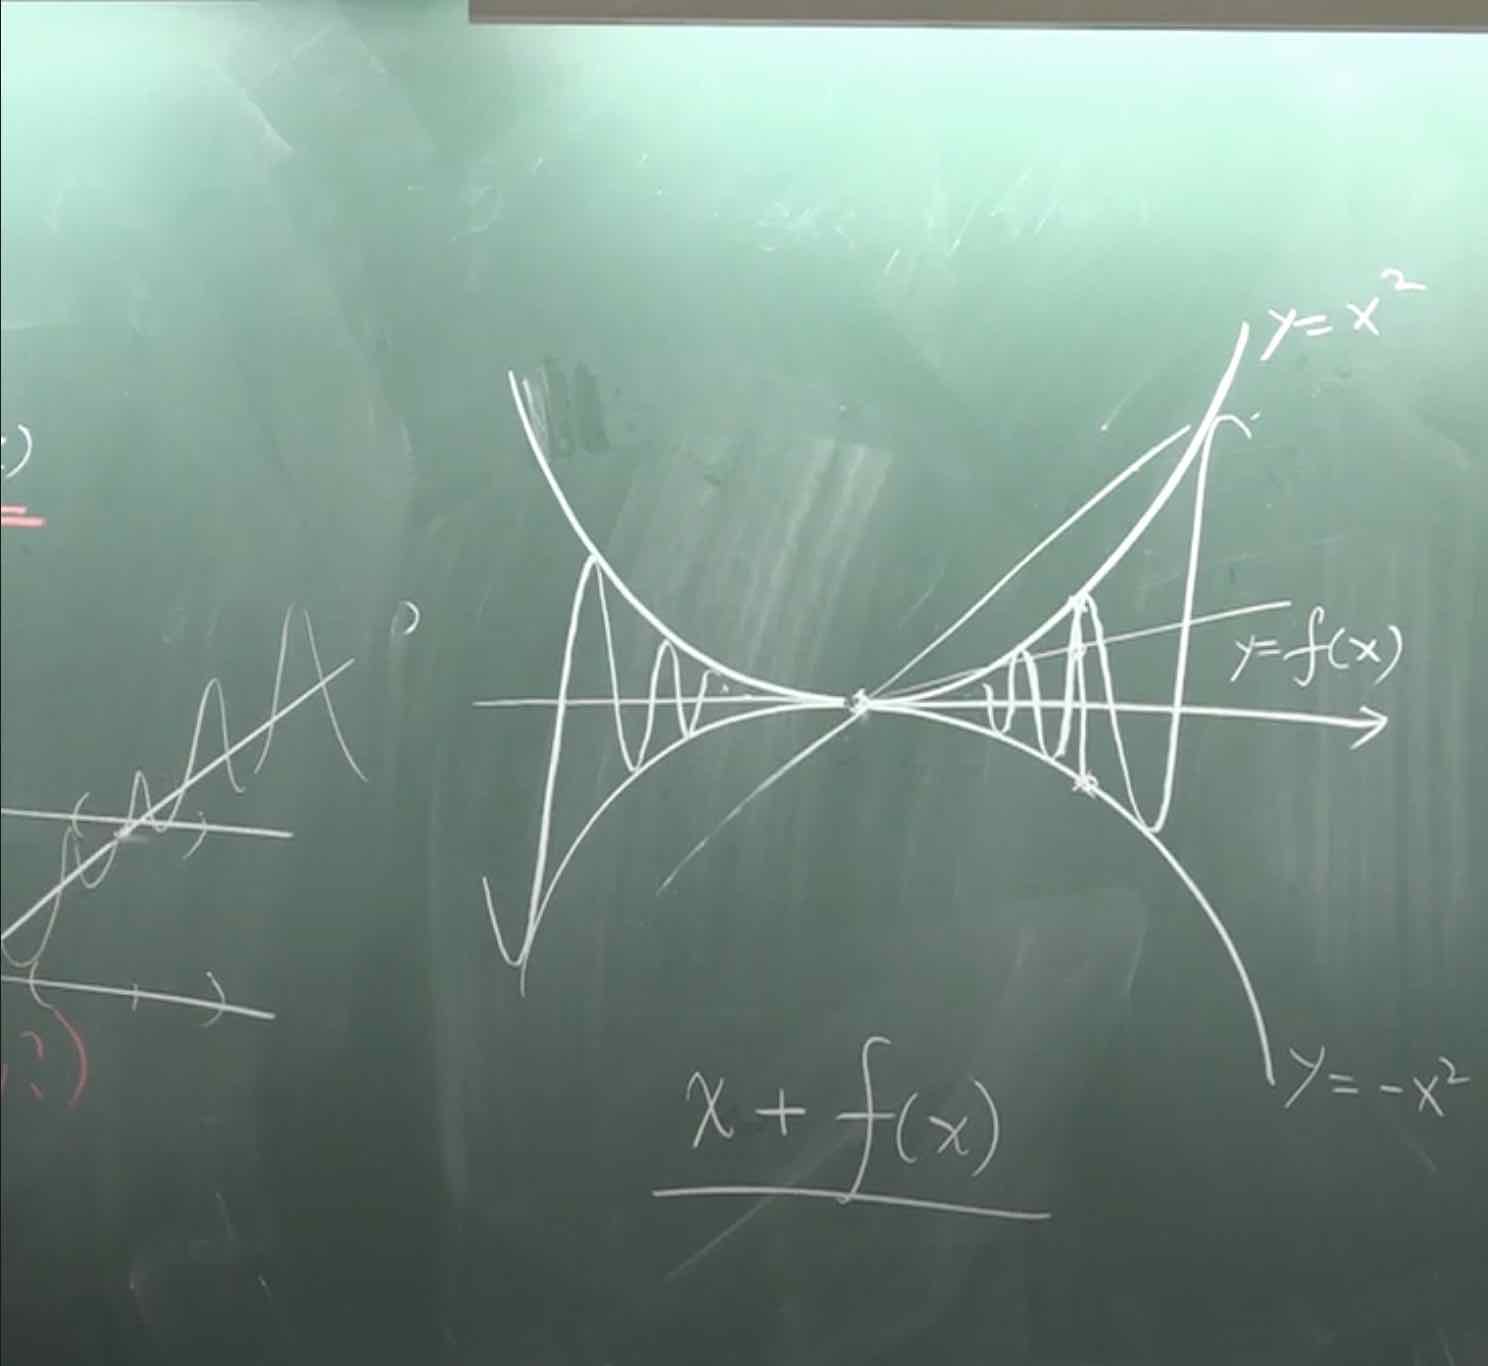 y=x²
y=f(x)
y=-x²
x+f(x)